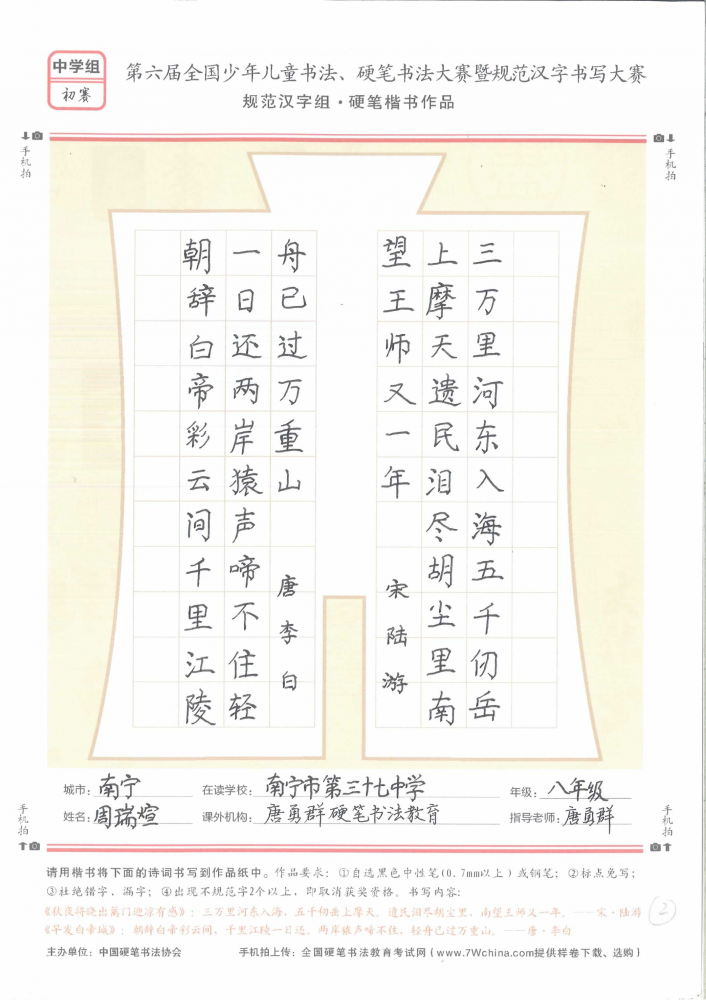 中学组
初赛
第六届全国少年儿童书法、硬笔书法大赛暨规范汉字书写大赛
规范汉字组·硬笔楷书作品
手机拍
手机拍
三万里河东入海五千仞岳
上摩天遗民泪尽胡尘里南
望王师又一年 宋陆游
朝辞白帝彩云间千里江陵
一日还两岸猿声啼不住轻
舟已过万重山 唐李白
城市：南宁 在读学校：南宁市第三十七中学 年级：八年级
姓名：周瑞煊 课外机构：唐勇群硬笔书法教育 指导老师：唐勇群
手机拍
手机拍
请用楷书将下面的诗词书写到作品纸中。作品要求：①自选黑色中性笔(0.7mm以上)或钢笔；②标点免写；
③杜绝错字、漏字；④出现不规范字2个以上，即取消获奖资格。书写内容：
《秋夜将晓出篱门迎凉有感》：三万里河东入海，五千仞岳上摩天。遗民泪尽胡尘里，南望王师又一年。——宋·陆游
《早发白帝城》：朝辞白帝彩云间，千里江陵一日还。两岸猿声啼不住，轻舟已过万重山。——唐·李白
2
主办单位：中国硬笔书法协会 手机拍上传：全国硬笔书法教育考试网（www.7Wchina.com提供样卷下载、选购）